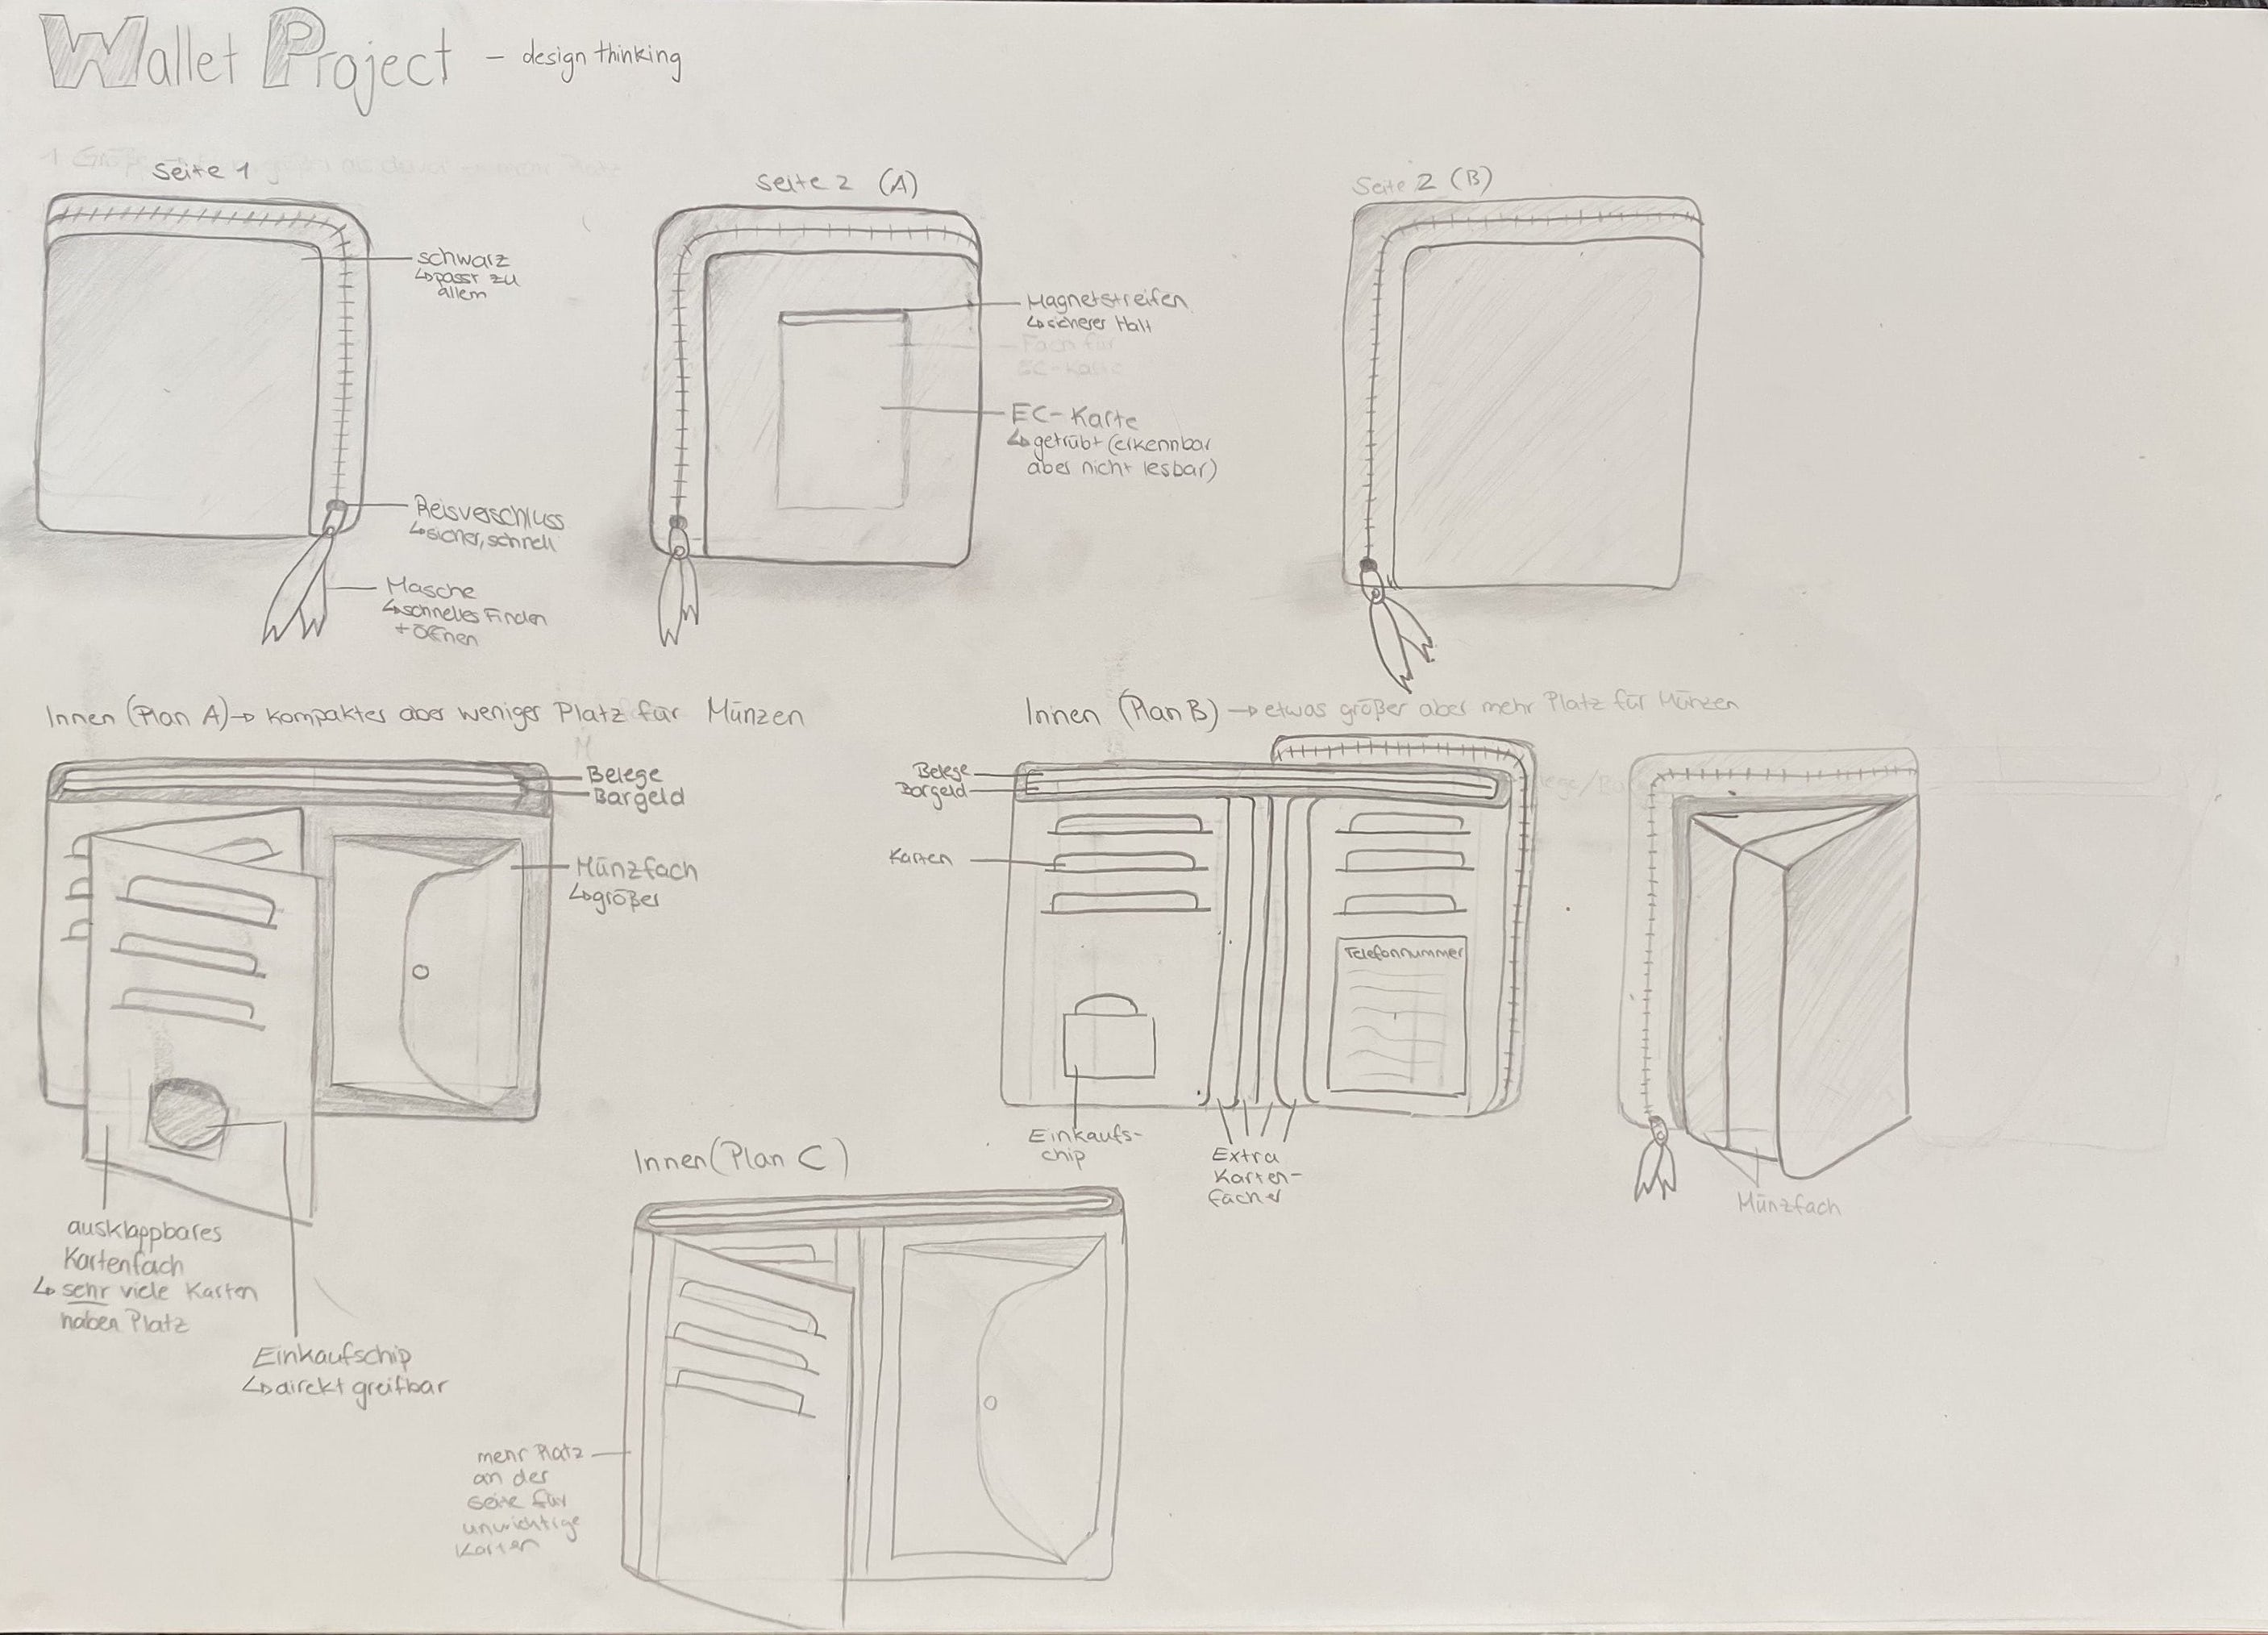 Wallet Project – design thinking
Seite 1
schwarz
↳ passt zu
allem
Reisverschluss
↳ sicher, schnell
Masche
↳ schnelles Finden
+ Öffnen
Seite 2 (A)
Magnetstreifen
↳ sicherer Halt
Fach für
EC-Karte
EC-Karte
↳ getrübt (erkennbar
aber nicht lesbar)
Seite 2 (B)
Innen (Plan A) → kompakter aber weniger Platz für Münzen
Belege
Bargeld
Münzfach
↳ größer
ausklappbares
Kartenfach
↳ sehr viele Karten
haben Platz
Einkaufschip
↳ direkt greifbar
Innen (Plan B) → etwas größer aber mehr Platz für Münzen
Belege
Bargeld
Karten
Telefonnummer
Einkaufs-
chip
Extra
Karten-
fächer
Münzfach
Innen (Plan C)
mehr Platz
an der
Seite für
unwichtige
Karten